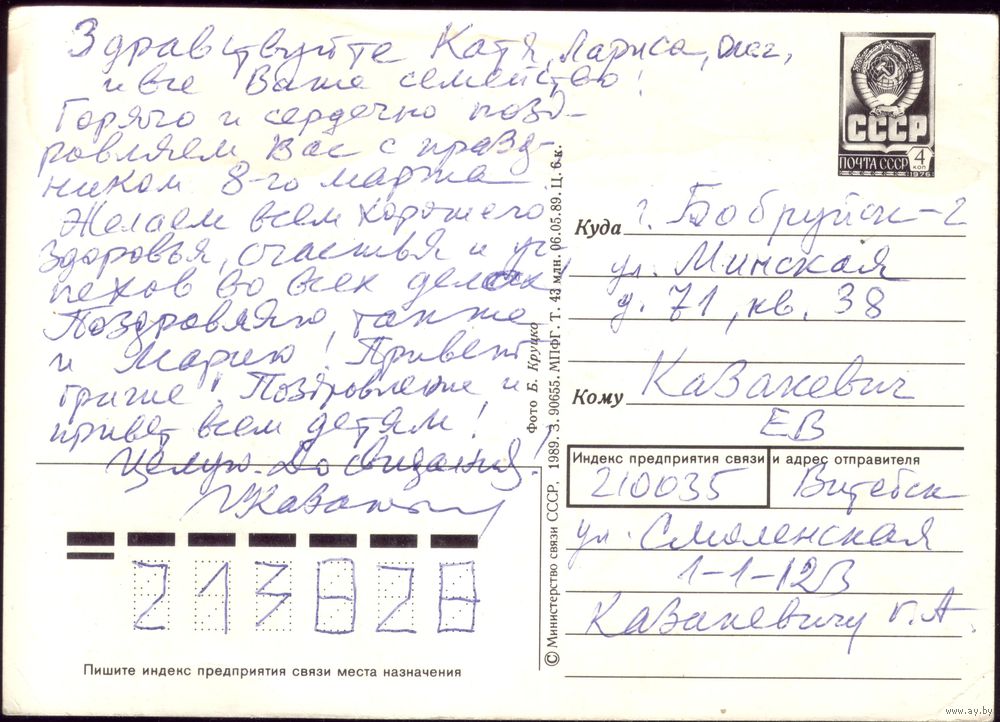 Здравствуйте Катя, Лариса, Олег,
и все Ваше семейство!
Горячо и сердечно позд-
ровляем Вас с празд-
ником 8-го марта
Желаем всем хорошего
здоровья, счастья и ус-
пехов во всех делах!
Поздровляю также
и Марию! Привет
Грише! Поздровление и
привет всем детям!
Целую. До свидания!
СССР
ПОЧТА СССР
4
КОП
1976
Куда г. Бобруйск-2
ул. Минская
д. 71, кв. 38
Кому Казакевич
ЕВ
Индекс предприятия связи и адрес отправителя
210035 Витебск
ул. Смоленская
1-1-12В
Казакевичу Г.А.
213828
Пишите индекс предприятия связи места назначения
Фото Б. Круцко
© Министерство связи СССР, 1989. З. 90655. МПФГ. Т. 43 млн. 06.05.89. Ц. 6 к.
www.ay.by